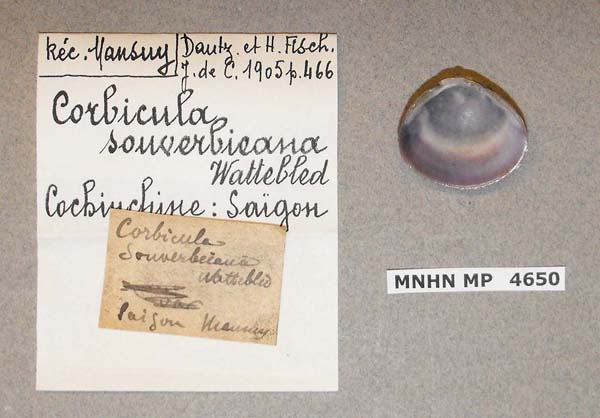 kéc. Mansuy
Dautz. et H. Fisch.
J. de C. 1905 p. 466
Corbicula
souverbieana
Wattebled
Cochinchine : Saïgon
Corbicula
Souverbieana
Wattebled
Saigon Mansuy
MNHN MP 4650